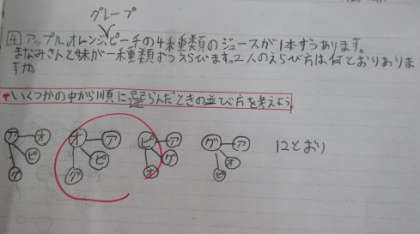 グレープ
④ アップル、オレンジ、ピーチの4種類のジュースが1本ずつあります。
まなみさんと妹が一種類ずつえらびます。2人のえらび方は何とおりありま
すか。
いくつかの中から順に選らんだときの並び方を考えよう。
ア オ ピ グ
オ ア ピ グ
ピ ア グ オ
グ ア オ ピ
12とおり